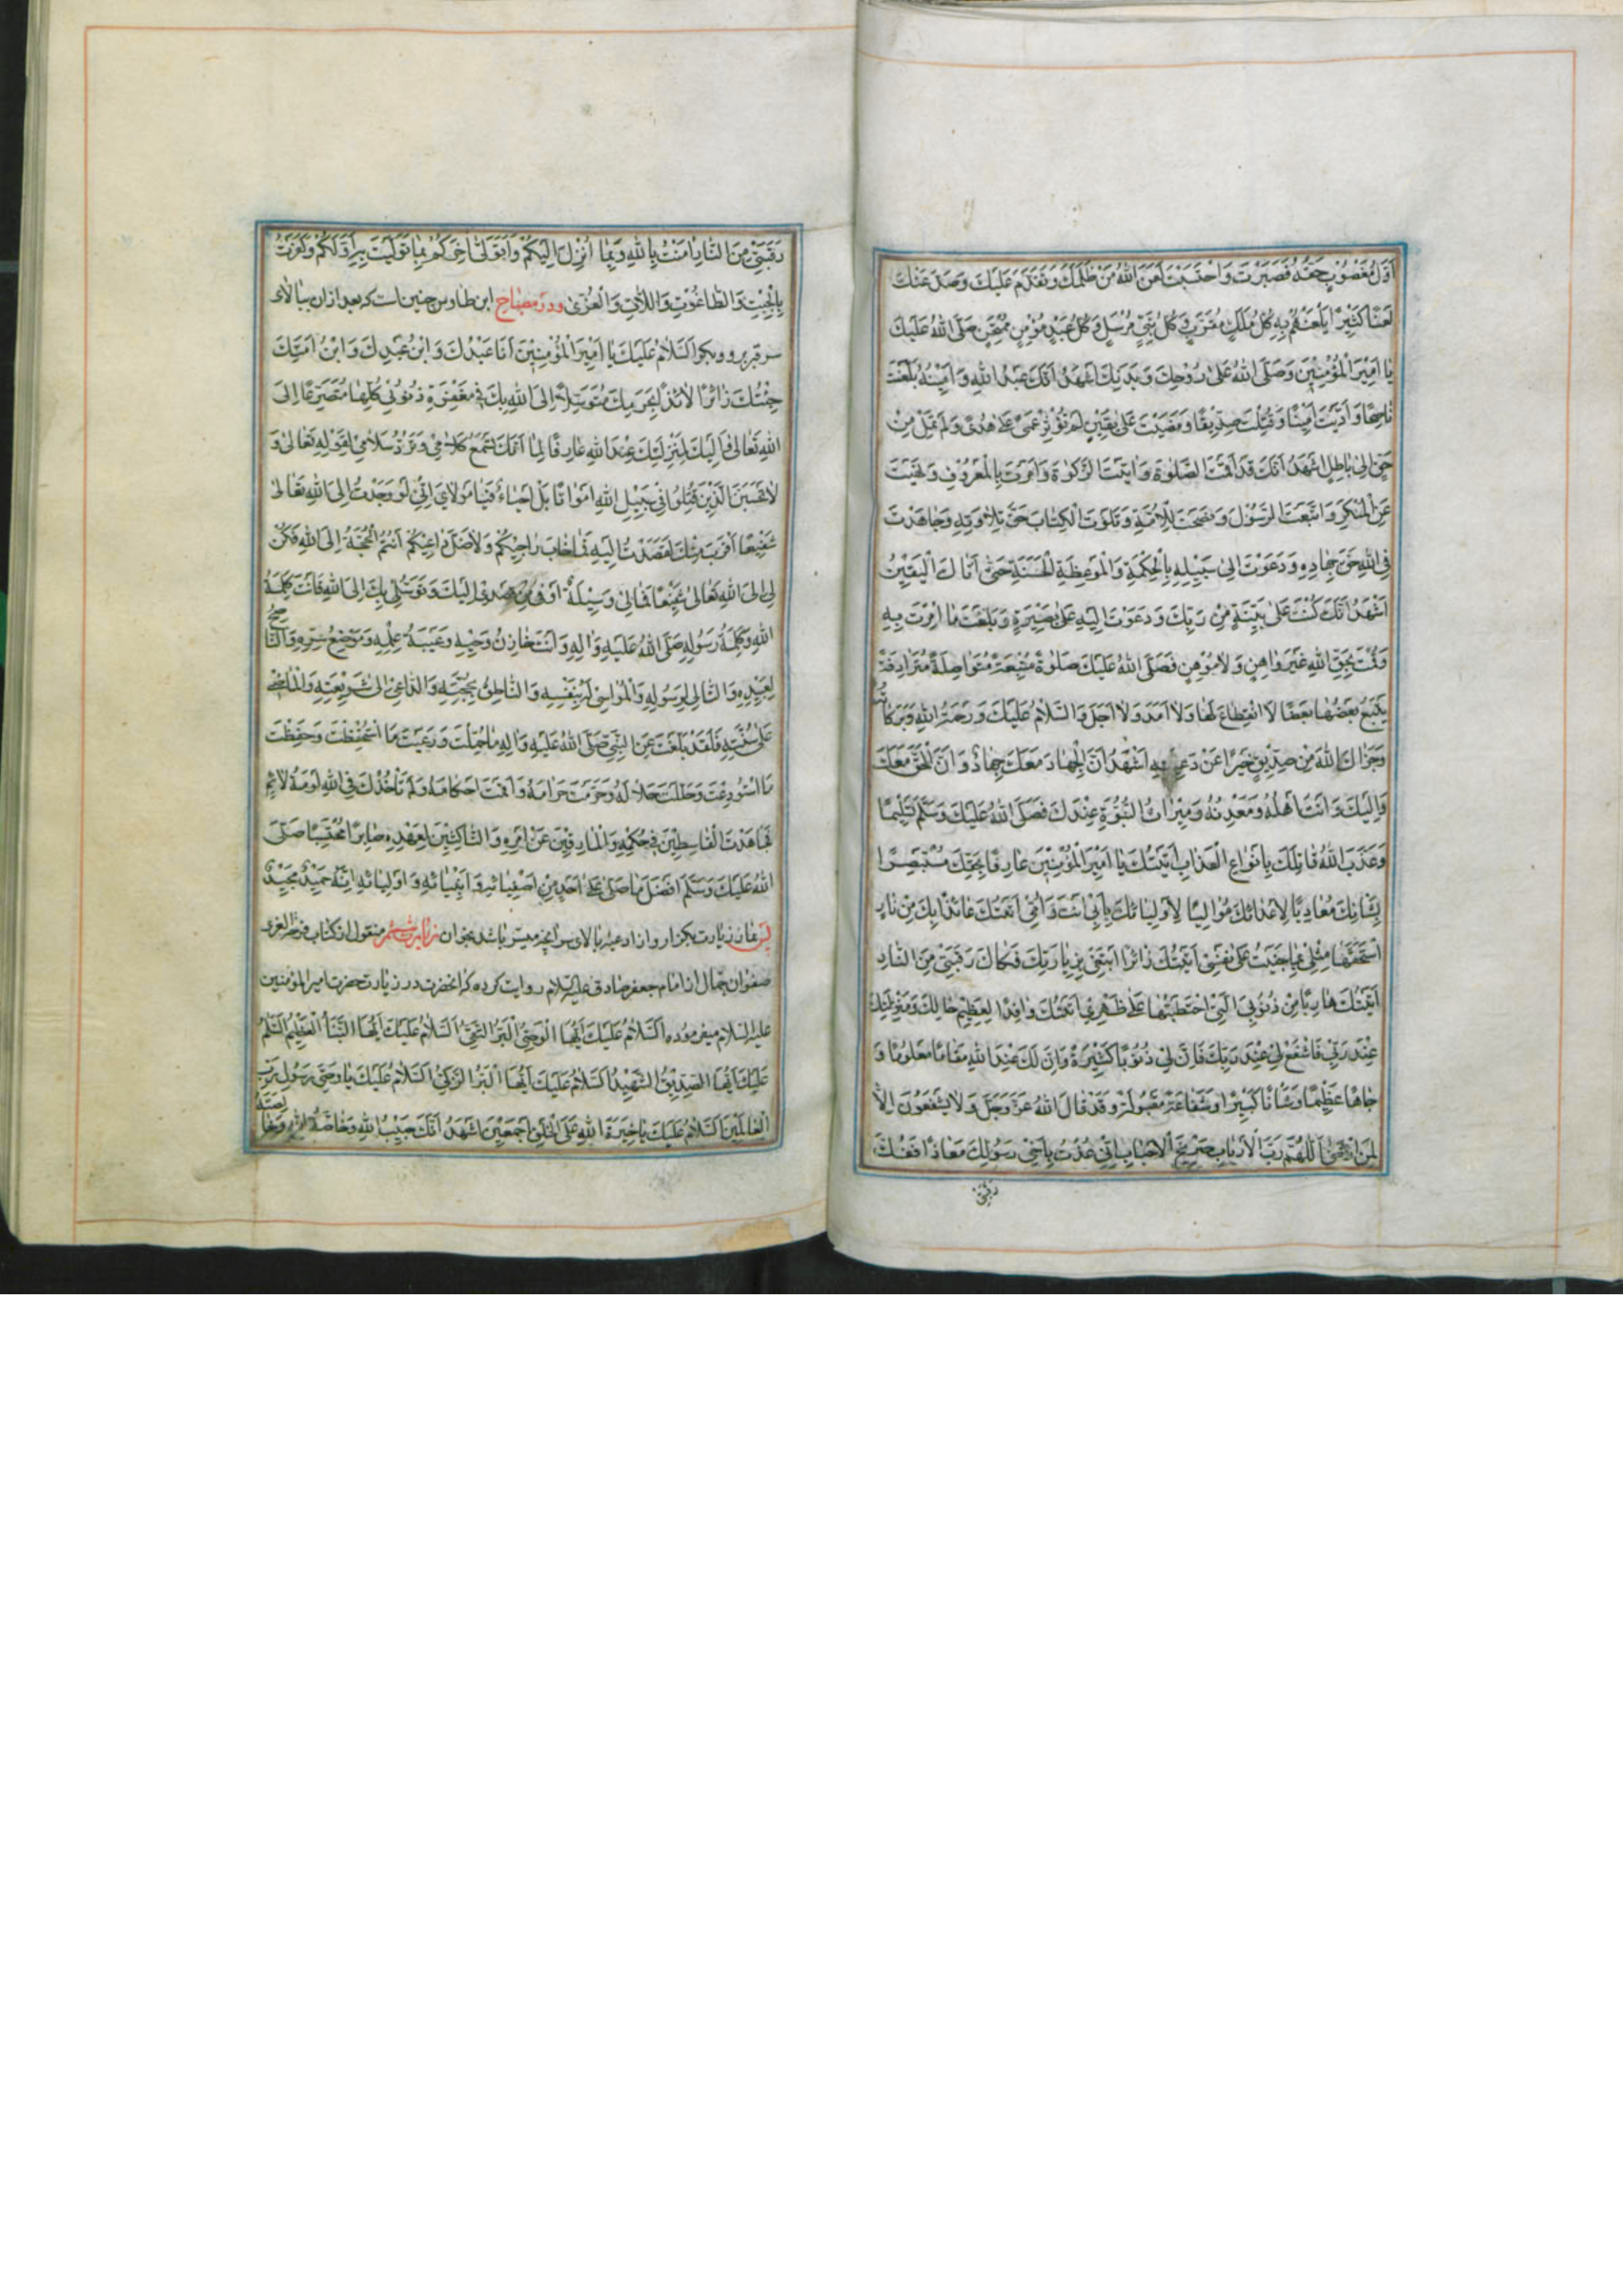 اَوَّلُ مَغْصُوبٍ حَقُّهُ فَصَبَرْتَ وَاحْتَسَبْتَ لَعَنَ اللهُ مَنْ ظَلَمَكَ وَتَقَدَّمَ عَلَيْكَ وَصَدَّ عَنْكَ
لَعْنًا كَثِيرًا يَلْعَنُهُمْ بِهِ كُلُّ مَلَكٍ مُقَرَّبٍ وَكُلُّ نَبِيٍّ مُرْسَلٍ وَكُلُّ عَبْدٍ مُؤْمِنٍ مُمْتَحَنٍ صَلَّى اللهُ عَلَيْكَ
يَا اَمِيرَ الْمُؤْمِنِينَ وَصَلَّى اللهُ عَلَى رُوحِكَ وَبَدَنِكَ اَشْهَدُ اَنَّكَ عَبْدُ اللهِ وَاَمِينُهُ بَلَّغْتَ
نَاصِحًا وَاَدَّيْتَ اَمِينًا وَقُتِلْتَ صِدِّيقًا وَمَضَيْتَ عَلَى يَقِينٍ لَمْ تُؤْثِرْ عَمًى عَلَى هُدًى وَلَمْ تَمِلْ مِنْ
حَقٍّ اِلَى بَاطِلٍ اَشْهَدُ اَنَّكَ قَدْ اَقَمْتَ الصَّلٰوةَ وَاٰتَيْتَ الزَّكٰوةَ وَاَمَرْتَ بِالْمَعْرُوفِ وَنَهَيْتَ
عَنِ الْمُنْكَرِ وَاتَّبَعْتَ الرَّسُولَ وَنَصَحْتَ لِلْاُمَّةِ وَتَلَوْتَ الْكِتَابَ حَقَّ تِلَاوَتِهِ وَجَاهَدْتَ
فِي اللهِ حَقَّ جِهَادِهِ وَدَعَوْتَ اِلَى سَبِيلِهِ بِالْحِكْمَةِ وَالْمَوْعِظَةِ الْحَسَنَةِ حَتَّى اَتَاكَ الْيَقِينُ
اَشْهَدُ اَنَّكَ كُنْتَ عَلَى بَيِّنَةٍ مِنْ رَبِّكَ وَدَعَوْتَ اِلَيْهِ عَلَى بَصِيرَةٍ وَبَلَّغْتَ مَا اُمِرْتَ بِهِ
وَقُمْتَ بِحَقِّ اللهِ غَيْرَ وَاهِنٍ وَلَا مُوهِنٍ فَصَلَّى اللهُ عَلَيْكَ صَلٰوةً مُتَّبَعَةً مُتَوَاصِلَةً مُتَرَادِفَةً
يَتْبَعُ بَعْضُهَا بَعْضًا لَا انْقِطَاعَ لَهَا وَلَا اَمَدَ وَلَا اَجَلَ وَالسَّلَامُ عَلَيْكَ وَرَحْمَةُ اللهِ وَبَرَكَاتُهُ
وَجَزَاكَ اللهُ مِنْ صِدِّيقٍ خَيْرًا عَنْ رَعِيَّتِهِ اَشْهَدُ اَنَّ الْجِهَادَ مَعَكَ جِهَادٌ وَاَنَّ الْحَقَّ مَعَكَ
وَاِلَيْكَ وَاَنْتَ اَهْلُهُ وَمَعْدِنُهُ وَمِيرَاثُ النُّبُوَّةِ عِنْدَكَ فَصَلَّى اللهُ عَلَيْكَ وَسَلَّمَ تَسْلِيمًا
وَعَذَّبَ اللهُ قَاتِلَكَ بِاَنْوَاعِ الْعَذَابِ اَتَيْتُكَ يَا اَمِيرَ الْمُؤْمِنِينَ عَارِفًا بِحَقِّكَ مُسْتَبْصِرًا
بِشَانِكَ مُعَادِيًا لِاَعْدَائِكَ مُوَالِيًا لِاَوْلِيَائِكَ بِاَبِي اَنْتَ وَاُمِّي اَتَيْتُكَ عَائِذًا بِكَ مِنْ نَارٍ
اسْتَحَقَّهَا مِثْلِي بِمَا جَنَيْتُ عَلَى نَفْسِي اَتَيْتُكَ زَائِرًا اَبْتَغِي بِزِيَارَتِكَ فَكَاكَ رَقَبَتِي مِنَ النَّارِ
اَتَيْتُكَ هَارِبًا مِنْ ذُنُوبِيَ الَّتِي احْتَطَبْتُهَا عَلَى ظَهْرِي اَتَيْتُكَ وَافِدًا لِعَظِيمِ حَالِكَ وَمَنْزِلَتِكَ
عِنْدَ رَبِّي فَاشْفَعْ لِي عِنْدَ رَبِّكَ فَاِنَّ لِي ذُنُوبًا كَثِيرَةً وَاِنَّ لَكَ عِنْدَ اللهِ مَقَامًا مَعْلُومًا وَ
جَاهًا عَظِيمًا وَشَانًا كَبِيرًا وَشَفَاعَةً مَقْبُولَةً وَقَدْ قَالَ اللهُ عَزَّ وَجَلَّ وَلَا يَشْفَعُونَ اِلَّا
لِمَنِ ارْتَضَى اَللّٰهُمَّ رَبَّ الْاَرْبَابِ صَرِيخَ الْاَحْبَابِ اِنِّي عُذْتُ بِاَخِي رَسُولِكَ مَعَاذًا فَفُكَّ
رقبتی
رَقَبَتِي مِنَ النَّارِ اٰمَنْتُ بِاللهِ وَبِمَا اُنْزِلَ اِلَيْكُمْ وَاَتَوَلَّى اٰخِرَكُمْ بِمَا تَوَلَّيْتُ بِهِ اَوَّلَكُمْ وَكَفَرْتُ
بِالْجِبْتِ وَالطَّاغُوتِ وَاللَّاتِ وَالْعُزَّى ودر مصباح ابن طاوس چنین است که بعد ازان ببالای
سر قبر برو وبگو اَلسَّلَامُ عَلَيْكَ يَا اَمِيرَ الْمُؤْمِنِينَ اَنَا عَبْدُكَ وَابْنُ عَبْدِكَ وَابْنُ اَمَتِكَ
جِئْتُكَ زَائِرًا لَائِذًا بِحَرَمِكَ مُتَوَسِّلًا اِلَى اللهِ بِكَ فِي مَغْفِرَةِ ذُنُوبِي كُلِّهَا مُتَضَرِّعًا اِلَى
اللهِ تَعَالَى وَاِلَيْكَ لِمَنْزِلَتِكَ عِنْدَ اللهِ عَارِفًا لِمَا اَنَّكَ تَسْمَعُ كَلَامِي وَتَرُدُّ سَلَامِي لِقَوْلِهِ تَعَالَى وَ
لَا تَحْسَبَنَّ الَّذِينَ قُتِلُوا فِي سَبِيلِ اللهِ اَمْوَاتًا بَلْ اَحْيَاءٌ فَيَا مَوْلَايَ اِنِّي لَوْ وَجَدْتُ اِلَى اللهِ تَعَالَى
شَفِيعًا اَقْرَبَ مِنْكَ لَقَصَدْتُ اِلَيْهِ فَمَا خَابَ رَاجِيكُمْ وَلَا ضَلَّ دَاعِيكُمْ اَنْتُمُ الْحُجَّةُ اِلَى اللهِ فَكُنْ
لِي اِلَى اللهِ تَعَالَى شَفِيعًا فَمَا لِي وَسِيلَةٌ اَوْفَى مِنْ قَصْدِي اِلَيْكَ وَتَوَسُّلِي بِكَ اِلَى اللهِ فَاَنْتَ كَلِمَةُ
اللهِ وَكَلِمَةُ رَسُولِهِ صَلَّى اللهُ عَلَيْهِ وَاٰلِهِ وَاَنْتَ خَازِنُ وَحْيِهِ وَعَيْبَةُ عِلْمِهِ وَمَوْضِعُ سِرِّهِ وَالنَّاصِحُ
لِعَبِيدِهِ وَالتَّالِي لِرَسُولِهِ وَالْمُوَاسِي لَهُ بِنَفْسِهِ وَالنَّاطِقُ بِحُجَّتِهِ وَالدَّاعِي اِلَى شَرِيعَتِهِ وَالْمَاضِي
عَلَى سُنَّتِهِ فَلَقَدْ بَلَّغْتَ عَنِ النَّبِيِّ صَلَّى اللهُ عَلَيْهِ وَاٰلِهِ مَا حُمِّلْتَ وَرَعَيْتَ مَا اسْتُحْفِظْتَ وَحَفِظْتَ
مَا اسْتُودِعْتَ وَحَلَّلْتَ حَلَالَهُ وَحَرَّمْتَ حَرَامَهُ وَاَقَمْتَ اَحْكَامَهُ وَلَمْ تَاْخُذْكَ فِي اللهِ لَوْمَةُ لَائِمٍ
فَجَاهَدْتَ الْقَاسِطِينَ فِي حُكْمِهِ وَالْمَارِقِينَ عَنْ اَمْرِهِ وَالنَّاكِثِينَ لِعَهْدِهِ صَابِرًا مُحْتَسِبًا صَلَّى
اللهُ عَلَيْكَ وَسَلَّمَ اَفْضَلَ مَا صَلَّى عَلَى اَحَدٍ مِنْ اَصْفِيَائِهِ وَاَنْبِيَائِهِ وَاَوْلِيَائِهِ اِنَّهُ حَمِيدٌ مَجِيدٌ
پس نماز زیارت بگزار وازادعیه بالای سر انچه میسر باشد بخوان زیارت ششم منقول از کتاب فرحة الغری
صفوان جمال از امام جعفر صادق علیه السلام روایت کرده که انحضرت در زیارت حضرت امیر المؤمنین
علیه السلام میفرموده اَلسَّلَامُ عَلَيْكَ اَيُّهَا الْوَصِيُّ الْبَرُّ التَّقِيُّ اَلسَّلَامُ عَلَيْكَ اَيُّهَا النَّبَأُ الْعَظِيمُ اَلسَّلَامُ
عَلَيْكَ اَيُّهَا الصِّدِّيقُ الشَّهِيدُ اَلسَّلَامُ عَلَيْكَ اَيُّهَا الْبَرُّ الزَّكِيُّ اَلسَّلَامُ عَلَيْكَ يَا وَصِيَّ رَسُولِ رَبِّ
الْعَالَمِينَ اَلسَّلَامُ عَلَيْكَ يَا خِيَرَةَ اللهِ عَلَى الْخَلْقِ اَجْمَعِينَ اَشْهَدُ اَنَّكَ حَبِيبُ اللهِ وَخَاصَّةُ اللهِ وَخَالِصَتُهُ